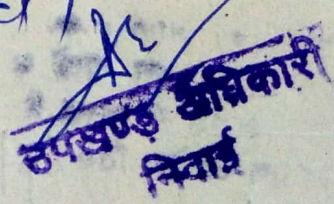 उपखण्ड अधिकारी
निवाई